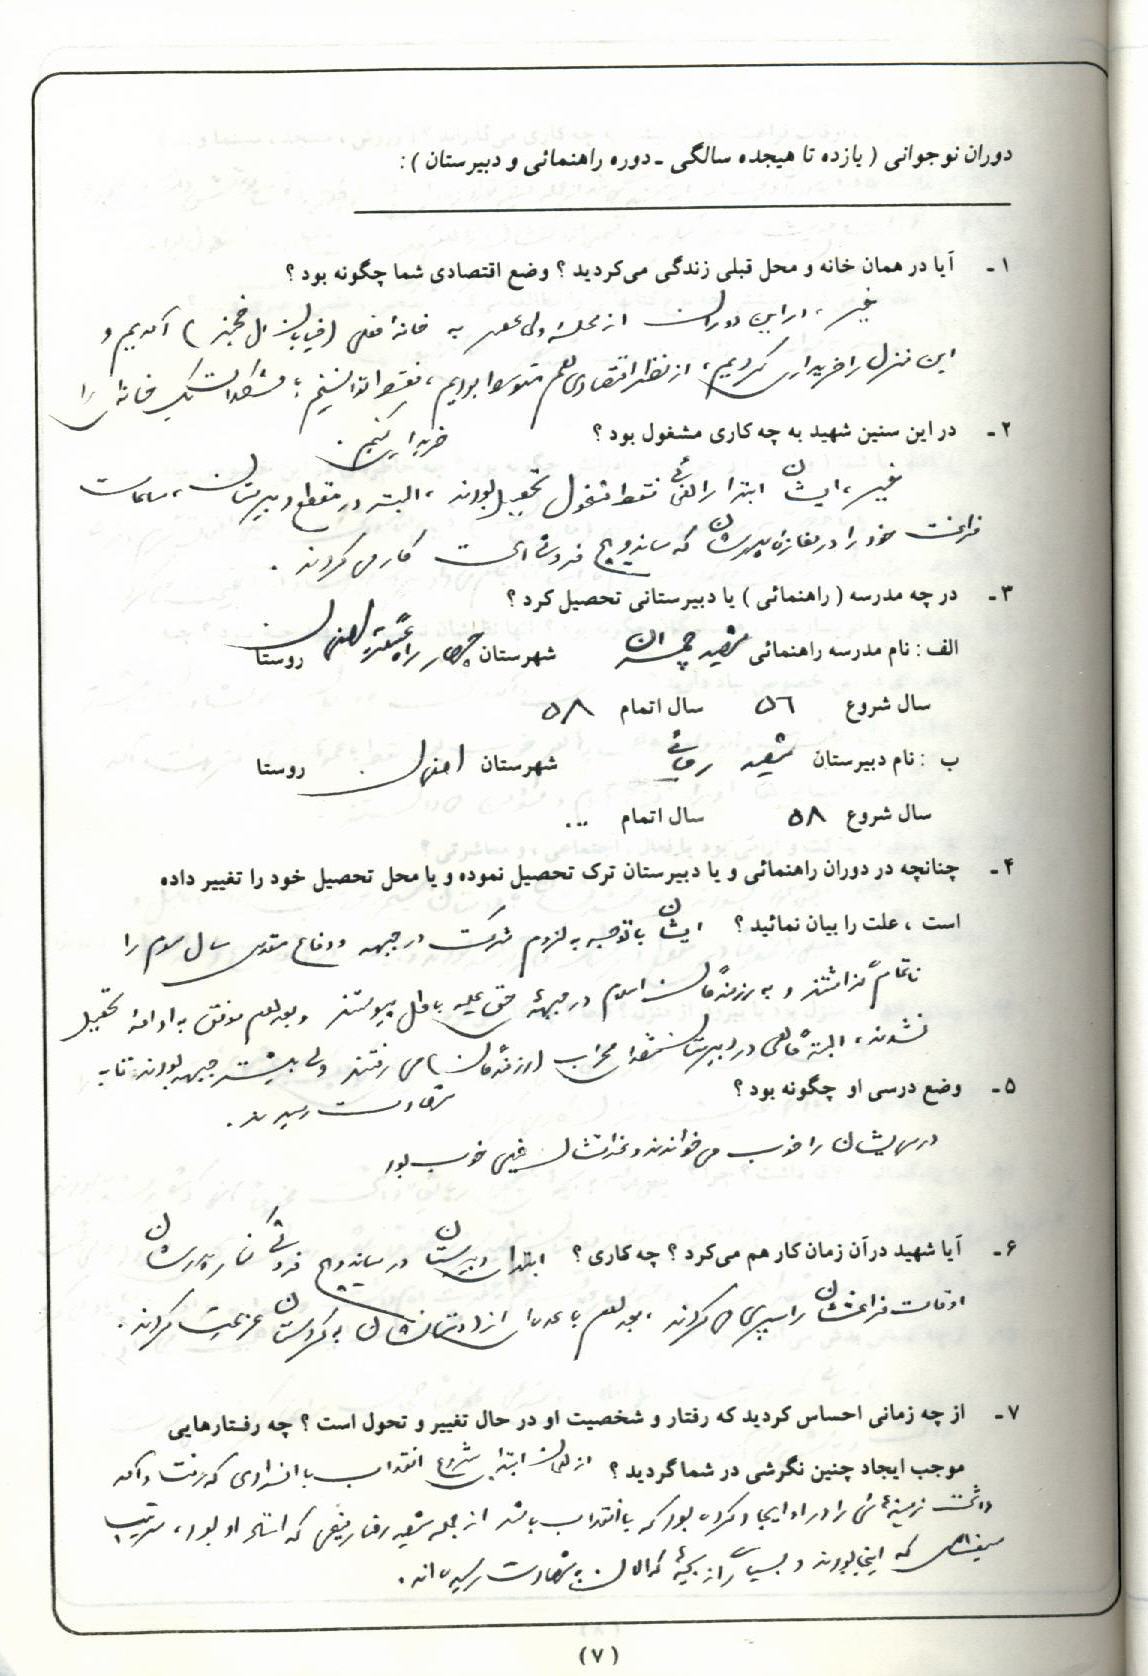 دوران نوجوانی ( یازده تا هیجده سالگی ـ دوره راهنمائی و دبیرستان ) :
۱ ـ آیا در همان خانه و محل قبلی زندگی می‌کردید ؟ وضع اقتصادی شما چگونه بود ؟
خیر ، در این دوران از محله ولی عصر به خانهٔ فعلی ( خیابان ) آمدیم و
این منزل را خریداری کردیم ، از نظر اقتصادی هم متوسط بودیم ، فقط توانستیم خانه را
خریداری کنیم .
۲ ـ در این سنین شهید به چه کاری مشغول بود ؟
خیر ، ایشان ابتدا راهنمائی فقط مشغول تحصیل بودند ، البته در مقطع دبیرستان ، ساعات
فراغت خود را در مغازه پدرشان که ساندویچ فروشی است کار می کردند .
۳ ـ در چه مدرسه ( راهنمائی ) یا دبیرستانی تحصیل کرد ؟
الف : نام مدرسه راهنمائی شهید چمران شهرستان چهار راه روستا
سال شروع ۵۶ سال اتمام ۵۸
ب : نام دبیرستان شهید رجائی شهرستان اصفهان . روستا
سال شروع ۵۸ سال اتمام ...
۴ ـ چنانچه در دوران راهنمائی و یا دبیرستان ترک تحصیل نموده و یا محل تحصیل خود را تغییر داده
است ، علت را بیان نمائید ؟ ایشان با توجه به لزوم شرکت در جبهه و دفاع مقدس سال سوم را
ناتمام گذاشتند و به رزمندگان اسلام در جبههٔ حق علیه باطل پیوستند و بعد هم موفق به ادامهٔ تحصیل
نشدند ، البته گاهی در دبیرستان شهدای محراب ( رزمندگان ) می رفتند ولی بیشتر جبهه بودند تا به
شهادت رسیدند .
۵ ـ وضع درسی او چگونه بود ؟
درسهایشان را خوب می خواندند و نمراتشان خیلی خوب بود
۶ ـ آیا شهید در آن زمان کار هم می‌کرد ؟ چه کاری ؟ ابتدای دبیرستان در ساندویچ فروشی کنار پدرشان
اوقات فراغتشان را سپری می کردند ، بعد هم با عده‌ای از دوستانشان به کردستان عزیمت کردند .
۷ ـ از چه زمانی احساس کردید که رفتار و شخصیت او در حال تغییر و تحول است ؟ چه رفتارهایی
موجب ایجاد چنین نگرشی در شما گردید ؟ از همان ابتدای شروع انقلاب با افرادی که رفت و آمد
داشت زمینه‌ای را در او ایجاد کرده بود که با انقلاب باشد از جمله شهید که استاد او بود ،
که اینجا بودند و بسیاری از بچه‌های که الان به شهادت رسیده اند .
( ۷ )